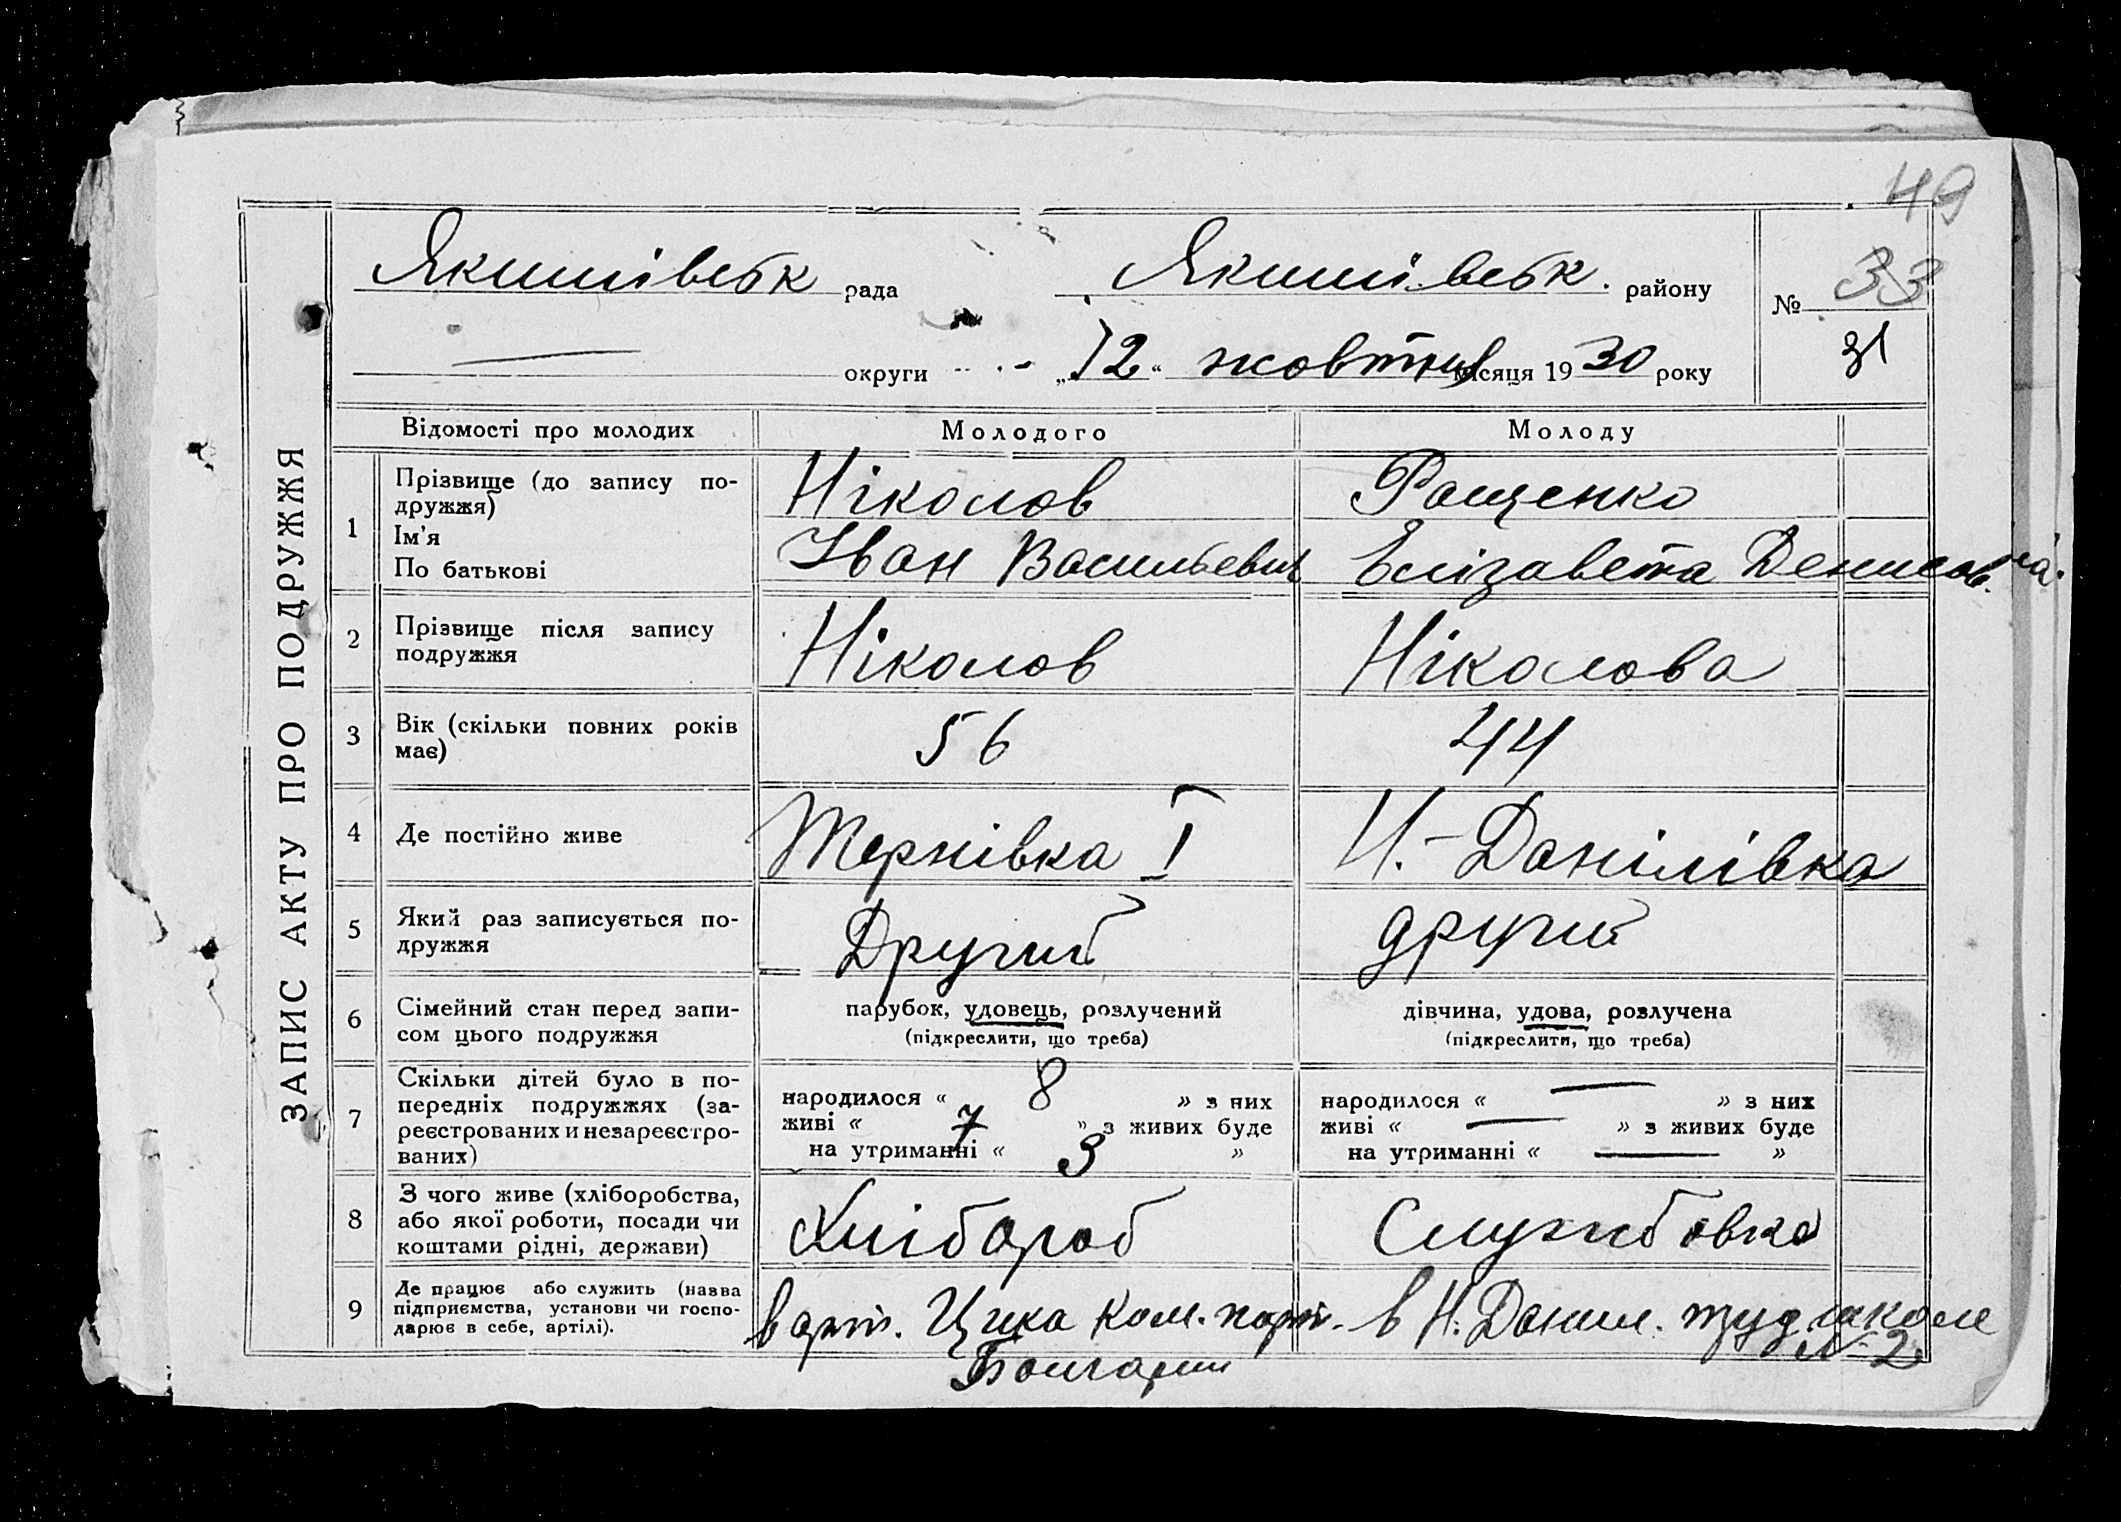 49
Якимівськ рада Якимівськ. району № 33
округи „12“ жовтня місяця 1930 року 31
ЗАПИС АКТУ ПРО ПОДРУЖЖЯ
Відомості про молодих Молодого Молоду
1 Прізвище (до запису по-
дружжя) Ніколов Ращенко
Ім’я
По батькові Іван Васильевич Елізавета Денисовна.
2 Прізвище після запису
подружжя Ніколов Ніколова
3 Вік (скільки повних років
має) 56 44
4 Де постійно живе Тернівка I Н.-Данілівка
5 Який раз записується по-
дружжя Другий другий
6 Сімейний стан перед запи-
сом цього подружжя парубок, удовець, розлучений дівчина, удова, розлучена
(підкреслити, що треба) (підкреслити, що треба)
7 Скільки дітей було в по-
передніх подружжях (за-
реєстрованих и незареєстро-
ваних)
народилося « 8 » з них народилося « — » з них
живі « 7 » з живих буде живі « — » з живих буде
на утриманні « 3 » на утриманні « — »
8 З чого живе (хліборобства,
або якої роботи, посади чи
коштами рідні, держави) Хлібороб Службовка
9 Де працює або служить (назва
підприємства, установи чи госпо-
дарює в себе, артілі).
в арт. Цика Ком. парт. в Н. Данил. труд школе
Болгарии № 2